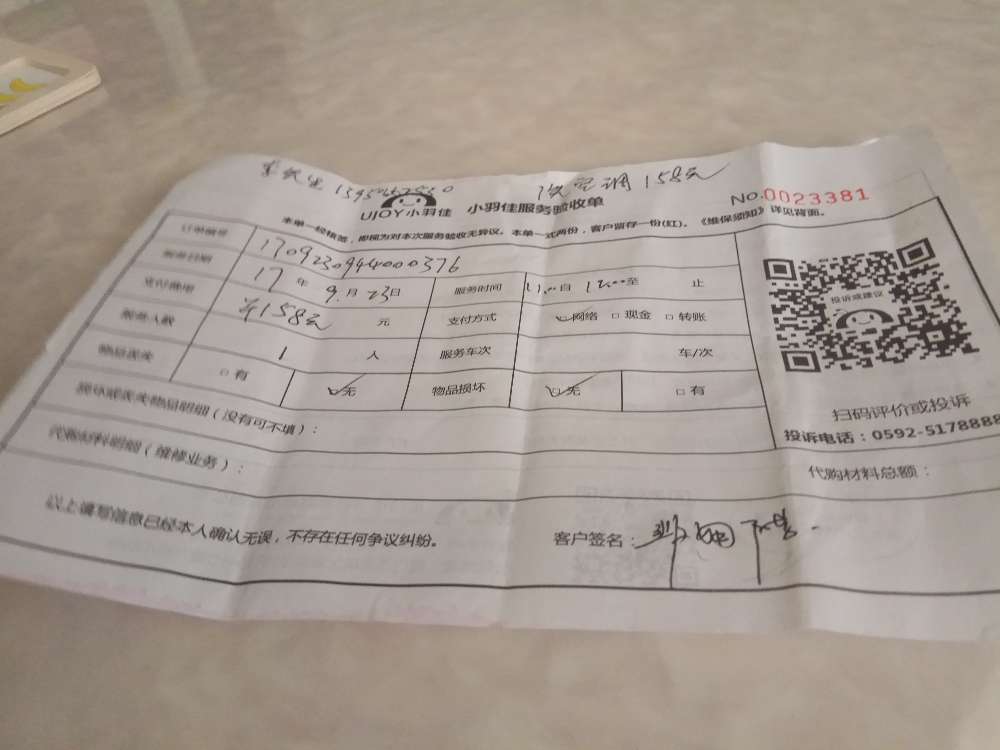 洗空调 158元
UJOY小羽佳 小羽佳服务验收单 No.0023381
本单一经核签，即视为对本次服务验收无异议。本单一式两份，客户留存一份(红)。《维保须知》详见背面。
订单编号 1709230944000376
服务日期 17年 9月 23日 服务时间 11:00自 12:00至 止
支付费用 ¥158元 元 支付方式 ☑网络 □现金 □转账
服务人数 1 人 服务车次 车/次
物品丢失 □有 ☑无 物品损坏 ☑无 □有
损坏或丢失物品明细（没有可不填）：
代购材料明细（维修业务）：
代购材料总额：
以上填写信息已经本人确认无误，不存在任何争议纠纷。 客户签名：
投诉或建议
扫码评价或投诉
投诉电话：0592-5178888